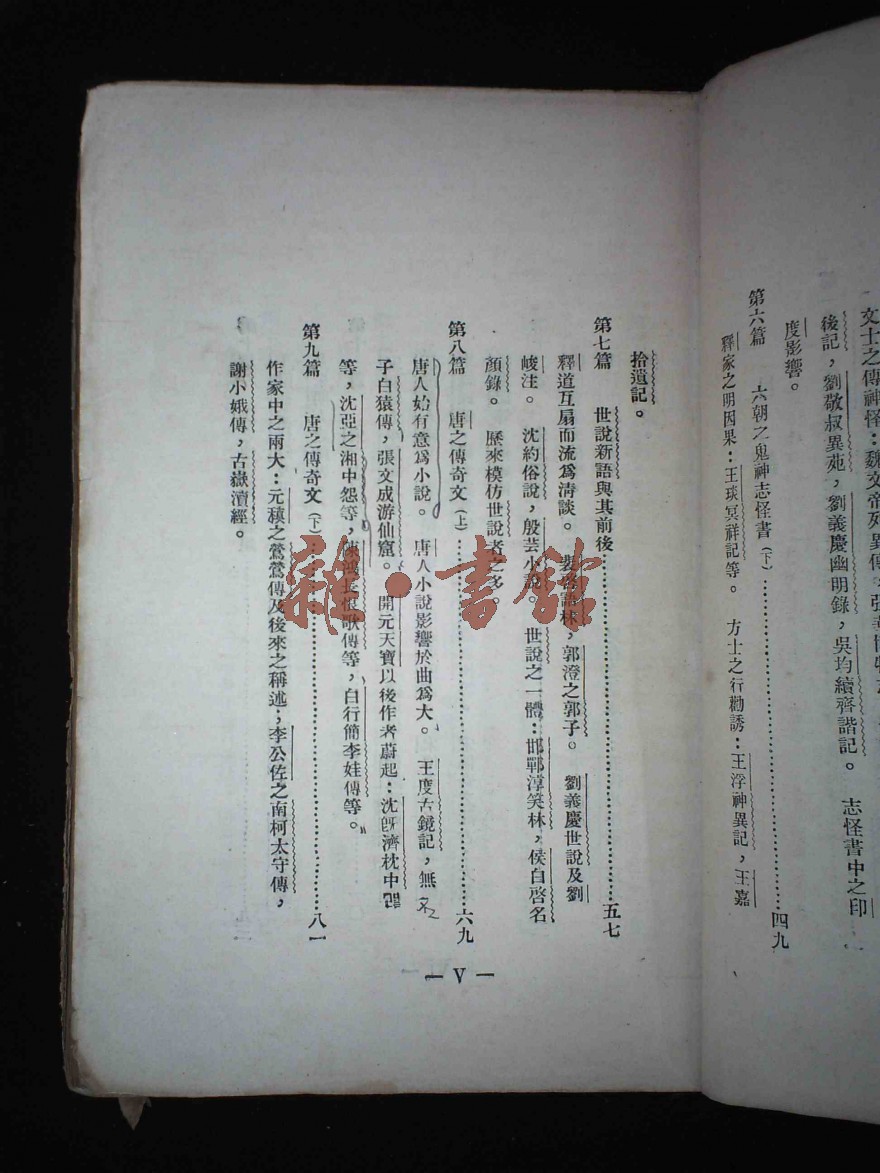 後記，劉敬叔異苑，劉義慶幽明錄，吳均續齊諧記。 志怪書中之印
度影響。
第六篇 六朝之鬼神志怪書（下）……四九
釋家之明因果：王琰冥祥記等。 方士之行勸誘：王浮神異記，王嘉
拾遺記。
第七篇 世說新語與其前後……五七
釋道互扇而流爲淸談。 裴啓語林，郭澄之郭子。 劉義慶世說及劉
峻注。 沈約俗說，殷芸小說。 世說之一體：邯鄲淳笑林，侯白啓
顏錄。 歷來模仿世說者之多。
第八篇 唐之傳奇文（上）……六九
唐人始有意爲小說。 唐人小說影響於曲爲大。 王度古鏡記，無名
子白猿傳，張文成游仙窟。 開元天寶以後作者蔚起：沈旣濟枕中記
等，沈亞之湘中怨等，陳鴻長恨歌傳等，白行簡李娃傳等。
第九篇 唐之傳奇文（下）……八一
作家中之兩大：元稹之鶯鶯傳及後來之稱述；李公佐之南柯太守傳，
謝小娥傳，古嶽瀆經。
— V —
雜·書館